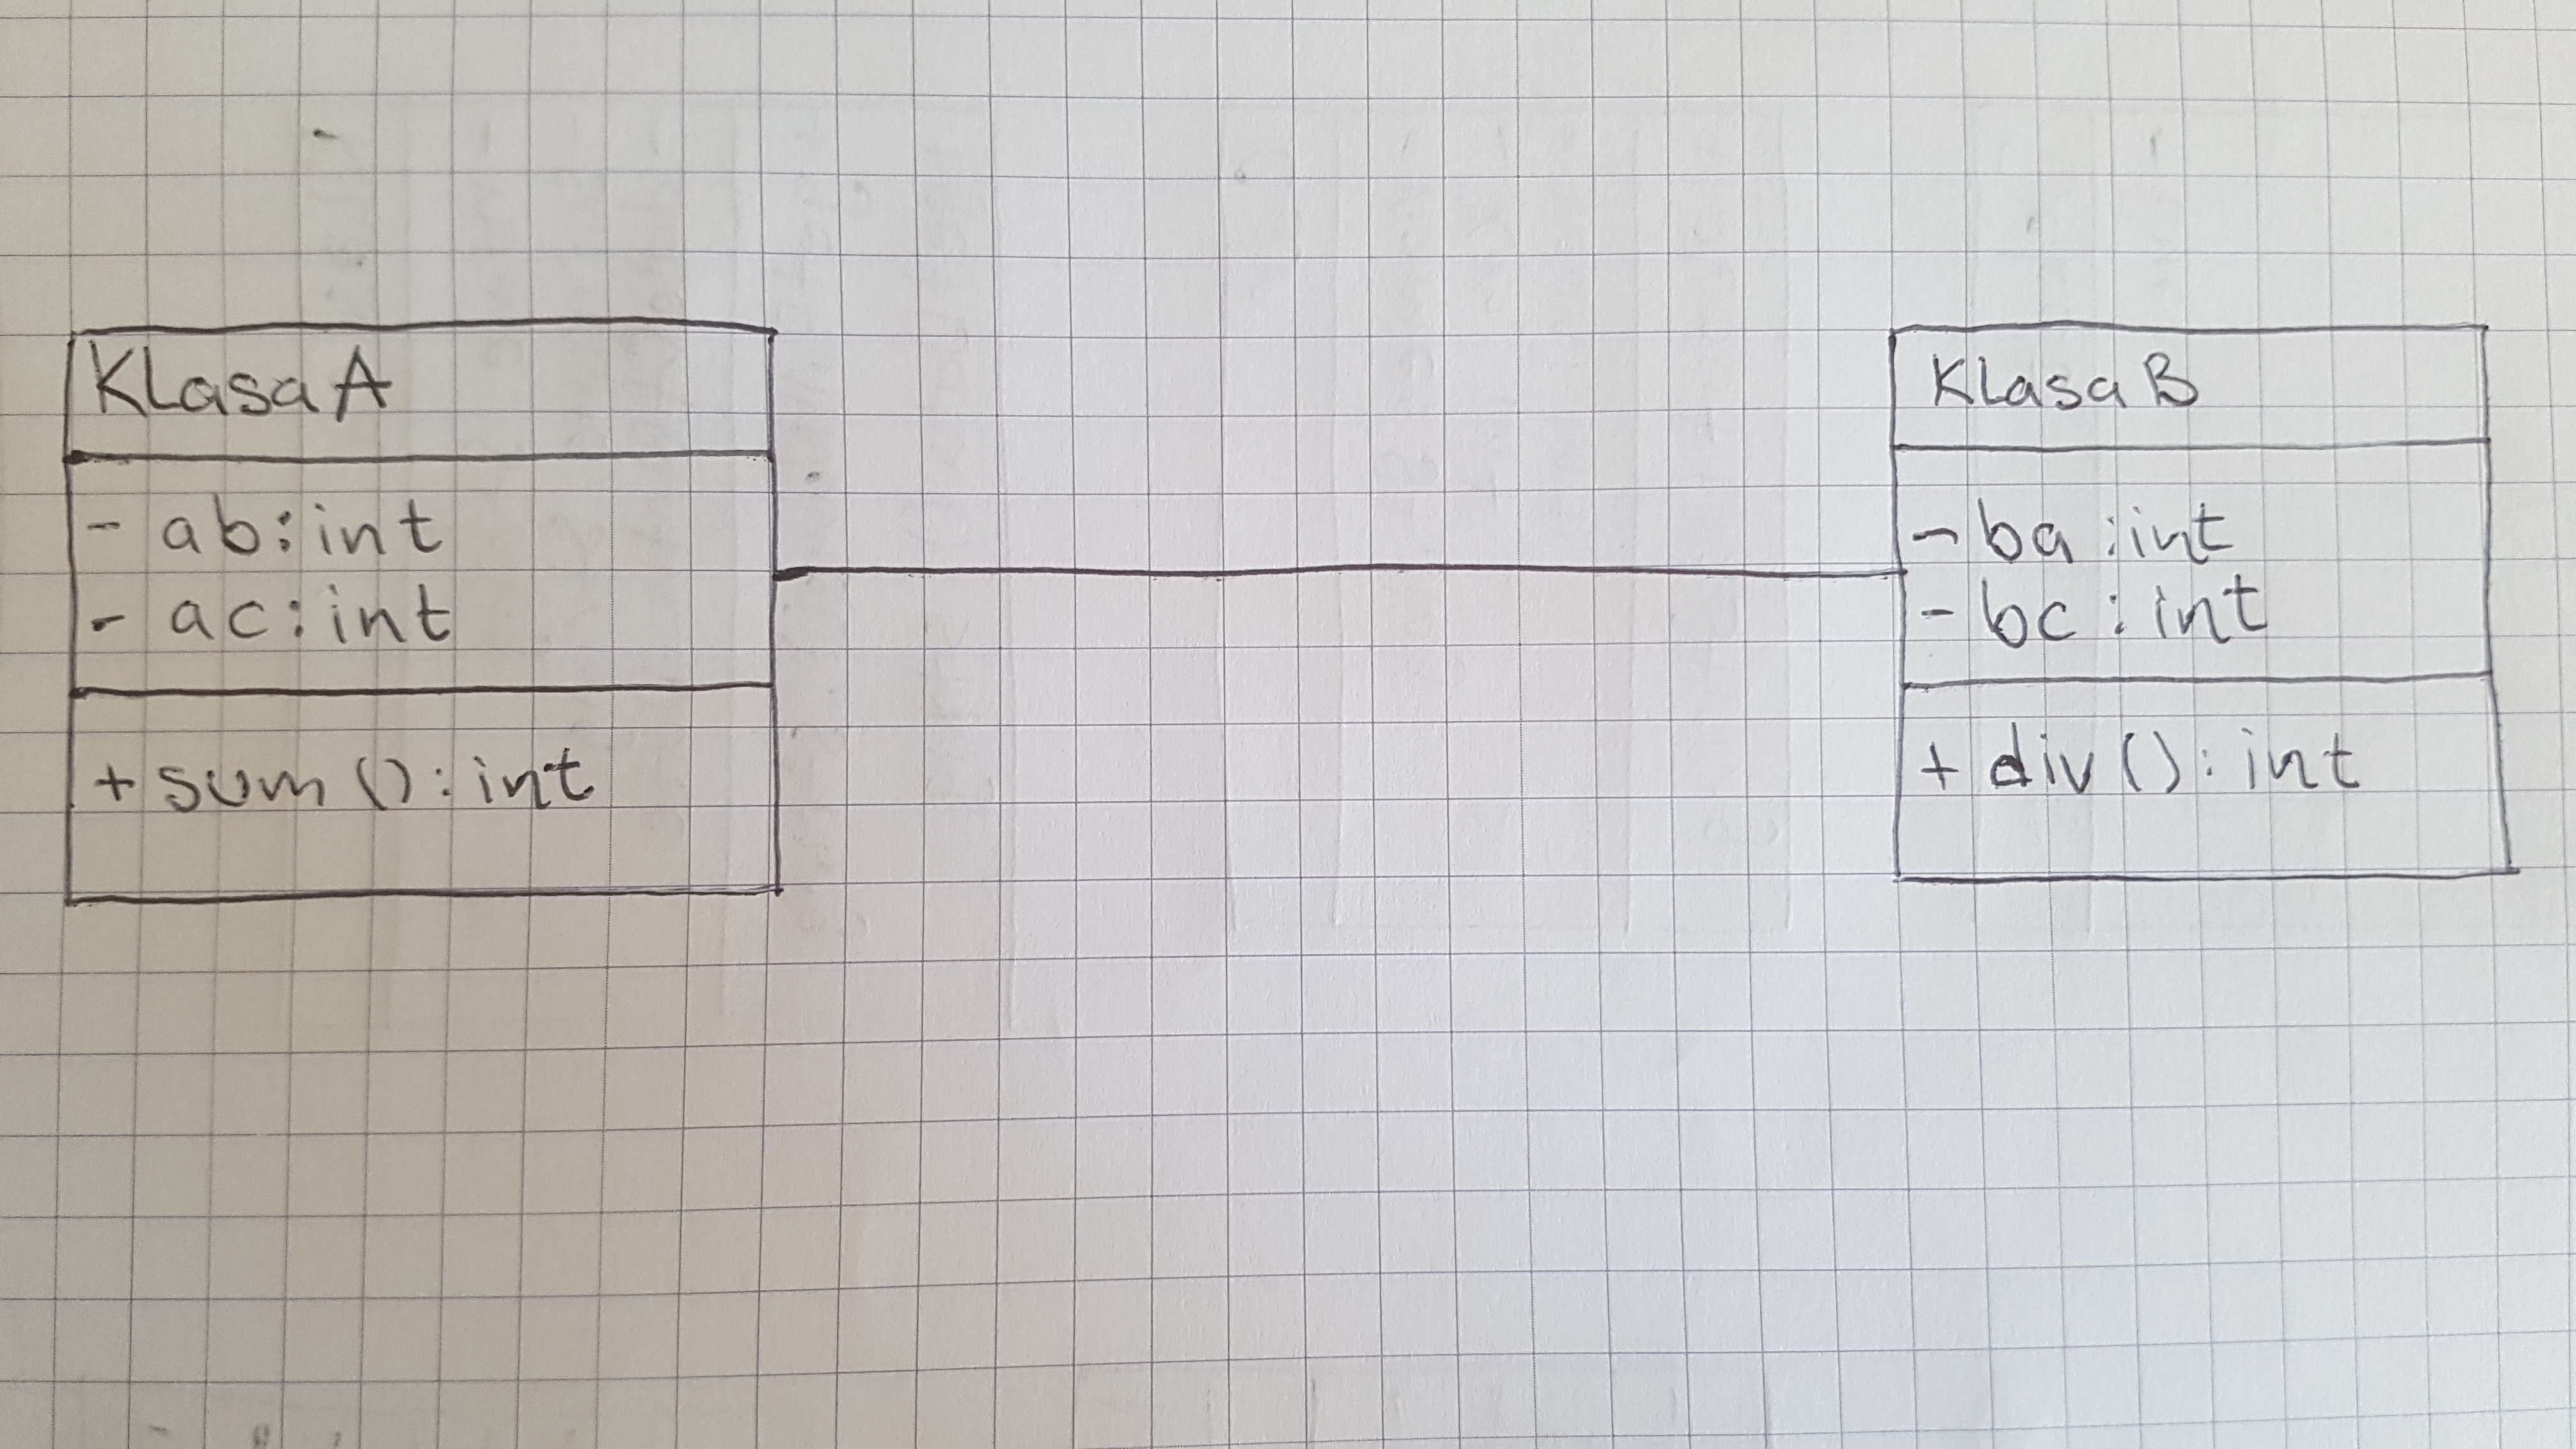 KlasaA
- ab:int
- ac:int
+ sum():int
KlasaB
- ba:int
- bc:int
+ div():int